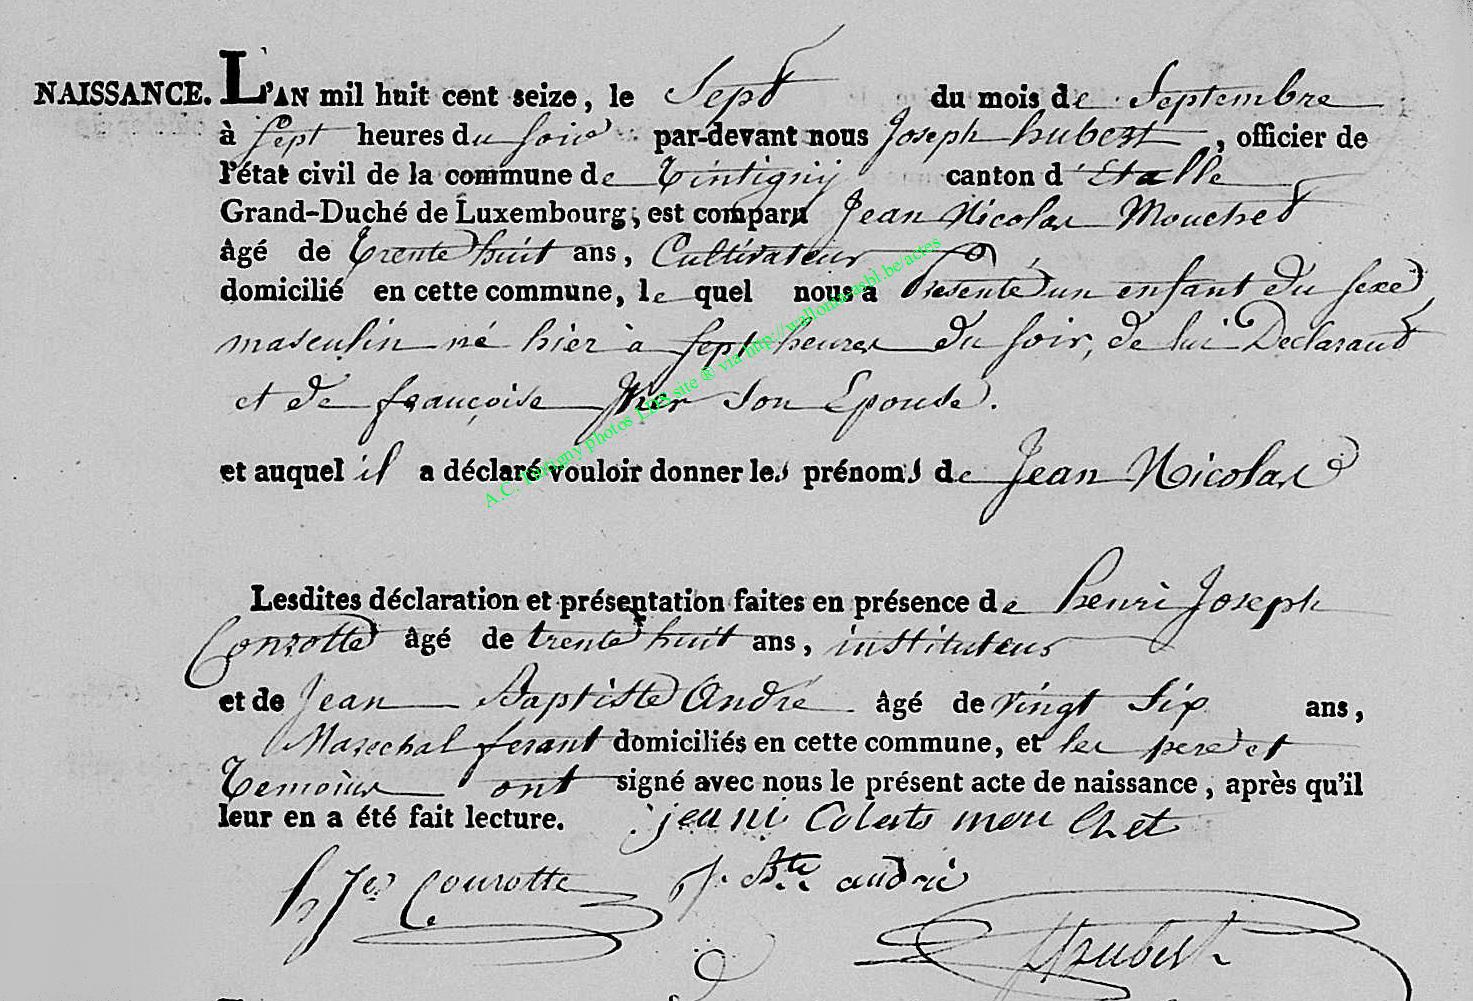 NAISSANCE. L'AN mil huit cent seize, le Sept du mois de Septembre
à sept heures du soir par-devant nous Joseph hubert, officier de
l'état civil de la commune de Tintigny canton d'Etalle
Grand-Duché de Luxembourg, est comparu Jean Nicolas Mouchet
âgé de trente huit ans, Cultivateur
domicilié en cette commune, le quel nous a Presenté un enfant du sexe
masculin né hier à sept heures du soir, de lui Declarant
et de françoise son Epouse.
et auquel il a déclaré vouloir donner les prénoms de Jean Nicolas
Lesdites déclaration et présentation faites en présence de henri Joseph
Conrotte âgé de trente huit ans, instituteur
et de Jean Baptiste André âgé de vingt six ans,
Marechal ferant domiciliés en cette commune, et les pere et
Temoins ont signé avec nous le présent acte de naissance, après qu'il
leur en a été fait lecture. jeani Colasts mou chet
h Jos Courotte J. Bte andrié
Hubert
A.C. Tintigny photos LDS site ® via http://wallonia-asbl.be/actes